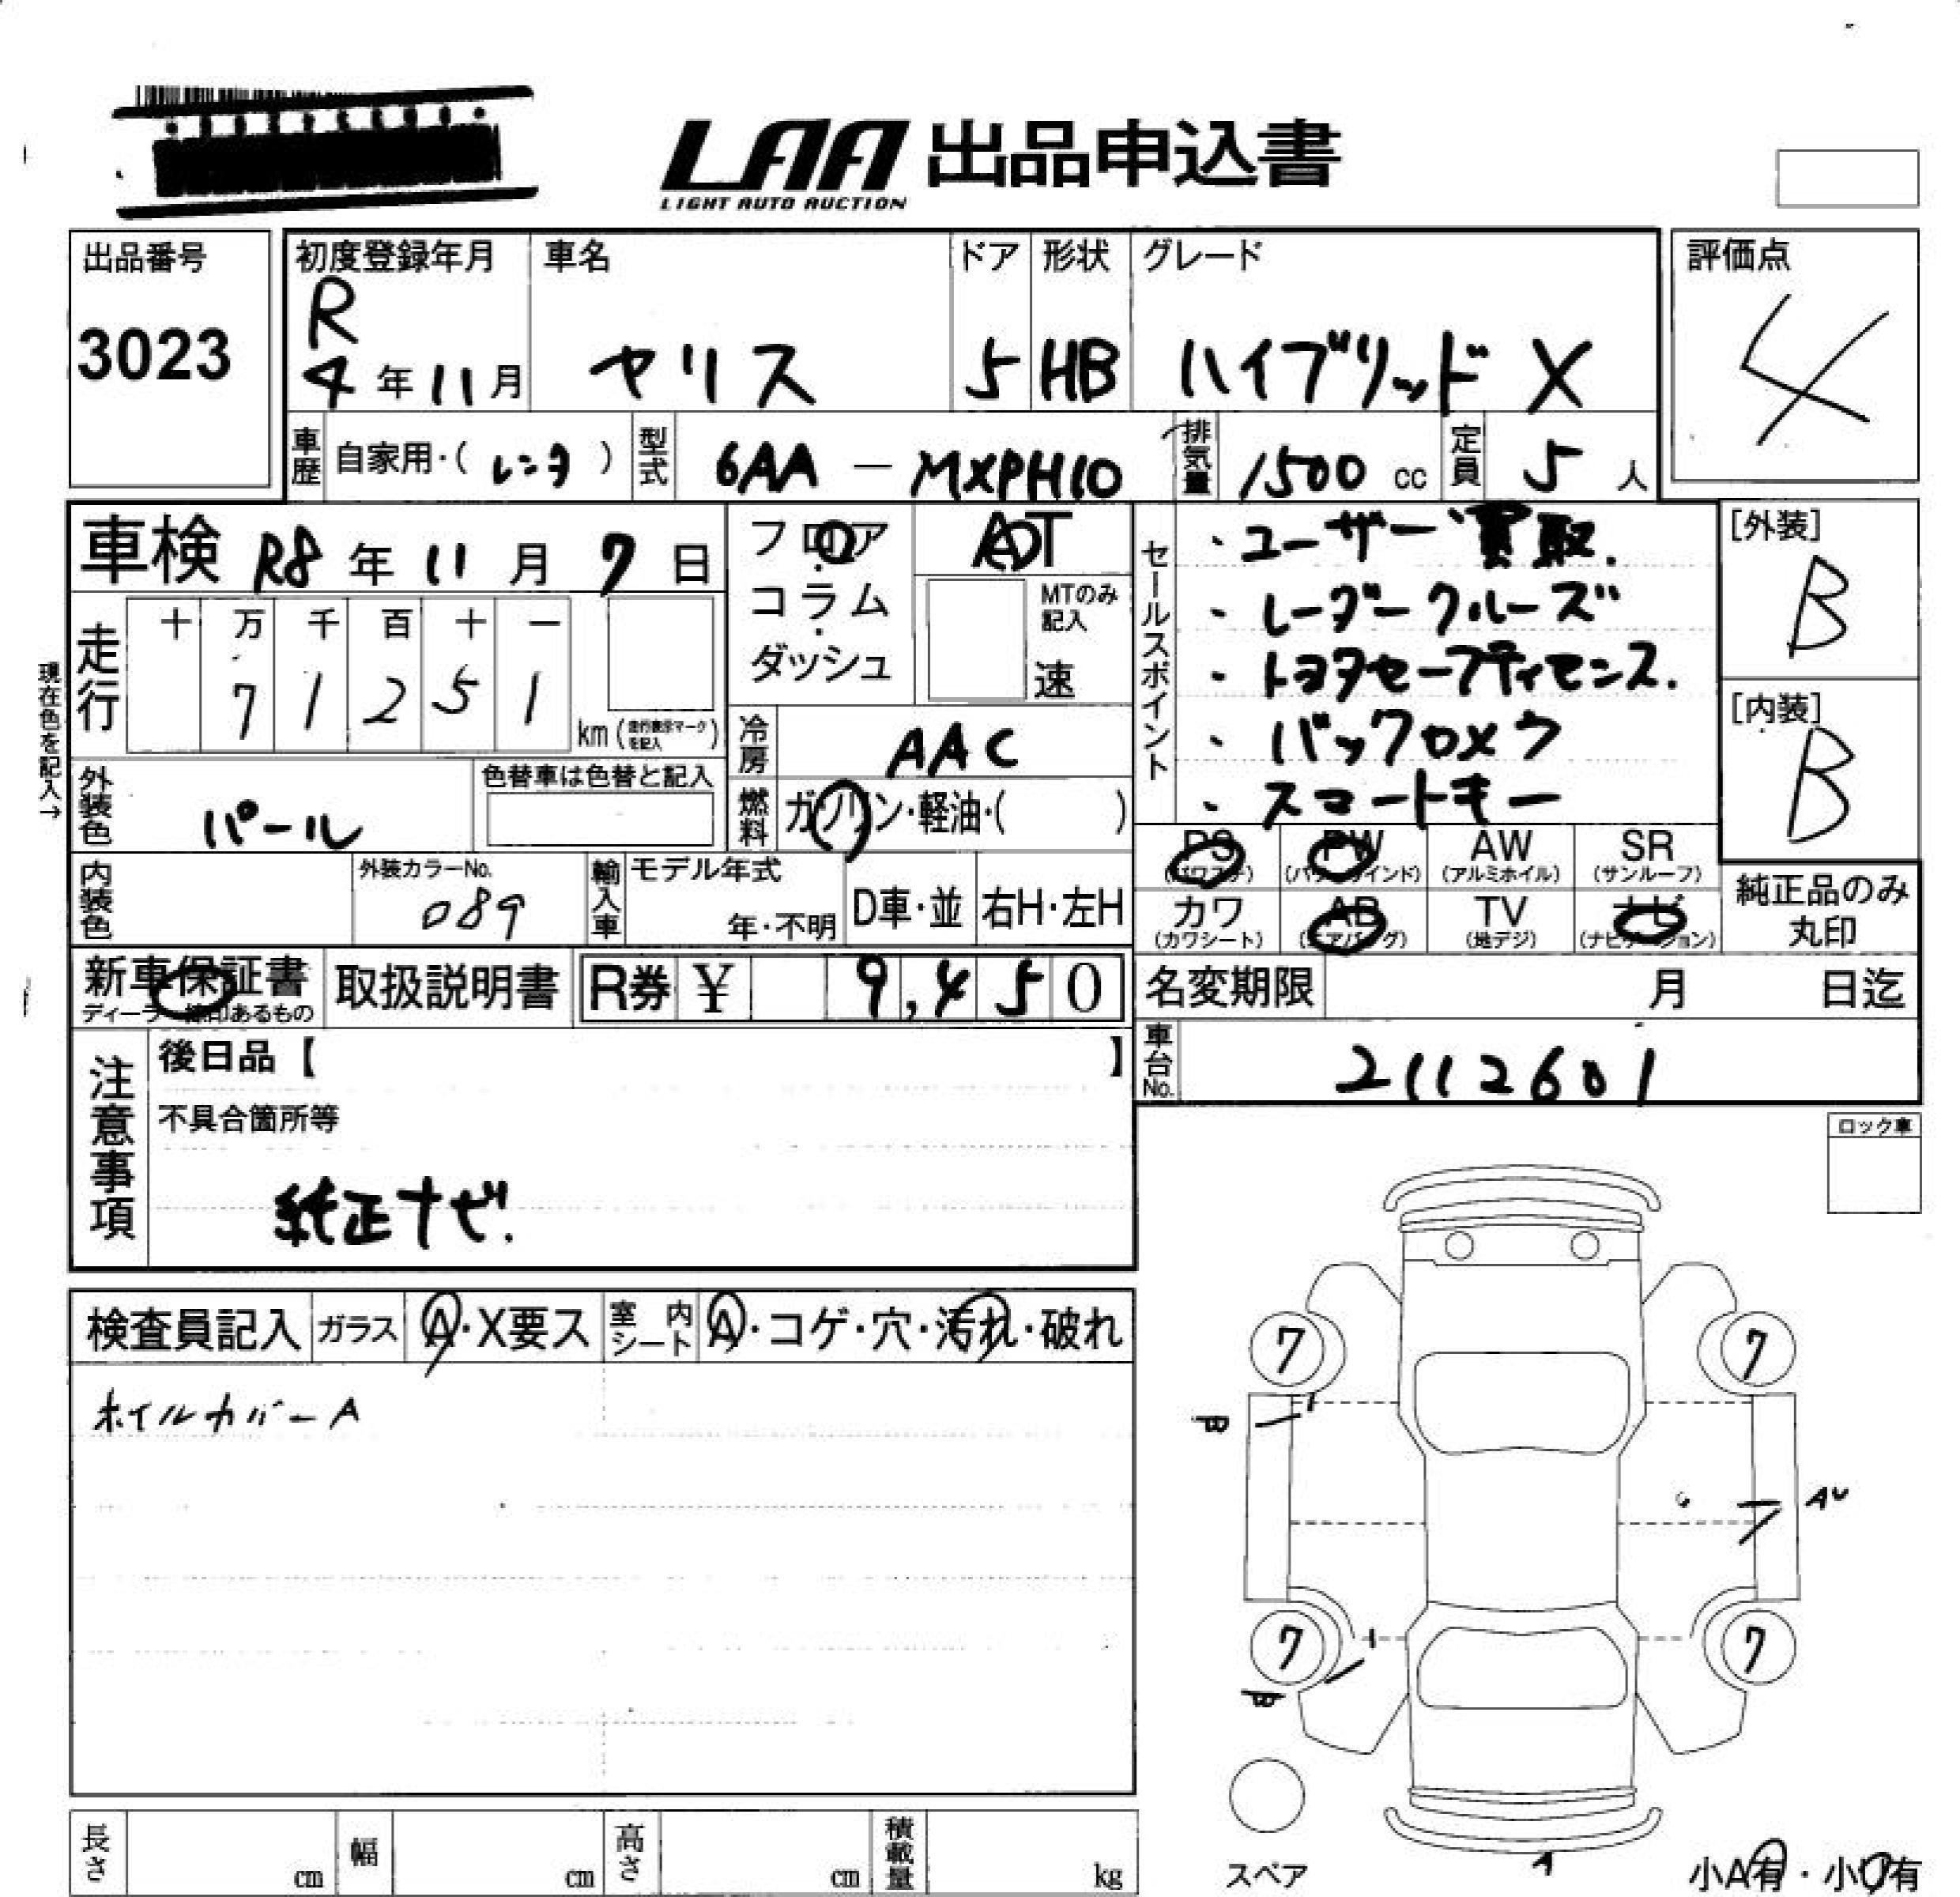 LAA 出品申込書
LIGHT AUTO AUCTION
出品番号
3023
初度登録年月
R
4年11月
車名
ヤリス
ドア
5
形状
HB
グレード
ハイブリッド X
評価点
4
車歴
自家用・(レンタ)
型式
6AA - MXPH10
排気量
1500 cc
定員
5 人
車検 R8年11月7日
現在色を記入→
走行
十 万 千 百 十 一
7 1 2 5 1
km(走行表示マークを記入)
フロア・コラム・ダッシュ
AT
MTのみ記入
速
冷房
AAC
燃料
ガソリン・軽油・( )
セールスポイント
・ユーザー買取.
・レーダークルーズ
・トヨタセーフティセンス.
・バックカメラ
・スマートキー
[外装]
B
[内装]
B
外装色
パール
色替車は色替と記入
内装色
外装カラーNo.
089
輸入車
モデル年式
年・不明
D車・並
右H・左H
PS
(パワステ)
PW
(パワーウインド)
AW
(アルミホイル)
SR
(サンルーフ)
カワ
(カワシート)
AB
(エアバッグ)
TV
(地デジ)
ナビ
(ナビゲーション)
純正品のみ
丸印
新車保証書
ディーラー捺印あるもの
取扱説明書
R券 ¥ 9,450
名変期限 月 日迄
車台No.
2112601
注意事項
後日品【 】
不具合箇所等
純正ナビ.
ロック車
検査員記入
ガラス
A・X要ス
室内シート
A・コゲ・穴・汚れ・破れ
ホイルカバーA
7
7
B
AU
7
7
B
スペア
A
小A有・小U有
長さ cm
幅 cm
高さ cm
積載量 kg